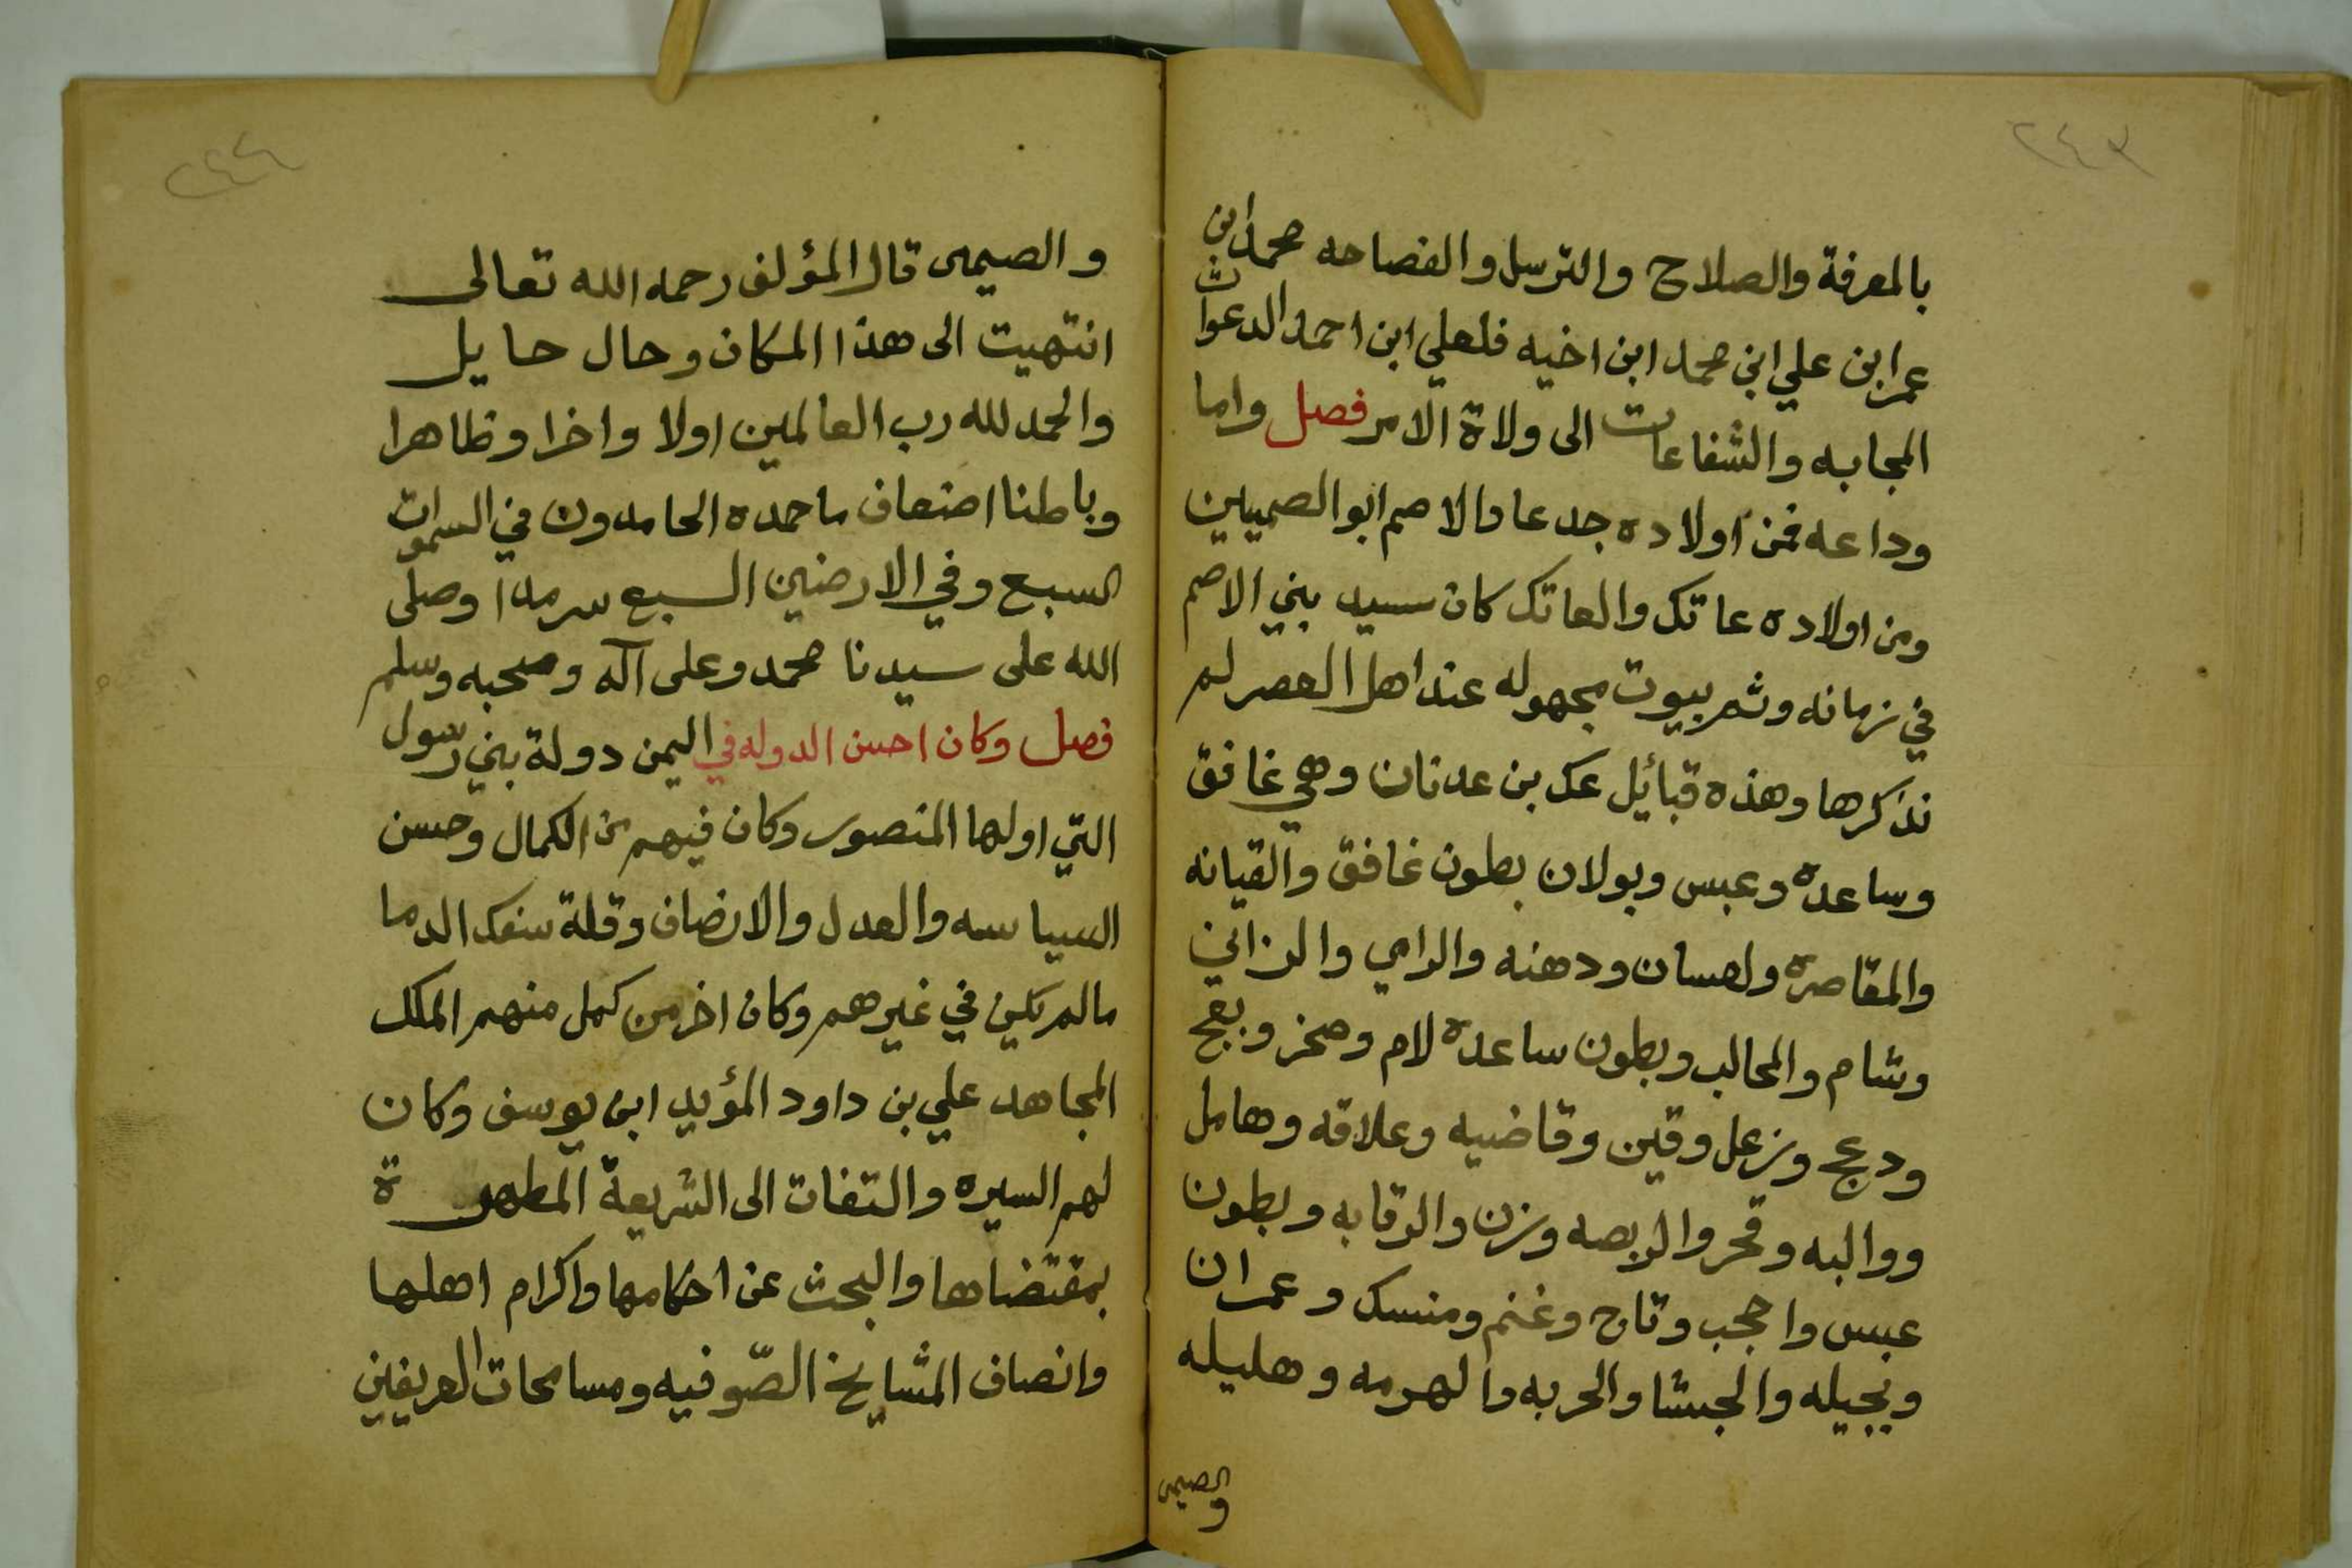 ٢٤٣
بالمعرفة والصلاح والترسل والفصاحه محمد ابن
عمر ابن علي ابن محمد ابن اخيه فلعلي ابن احمد الدعوات
المجابه والشفاعات الى ولاة الامر فصل واما
وداعه فمن اولاده جدعا والاصم ابو الصميين
ومن اولاده عاتك والعاتك كان سيد بني الاصم
في زمانه وثم بيوت مجهوله عند اهل العصر لم
نذكرها وهذه قبائل عك بن عدنان وهي غافق
وساعدة وعبس وبولان بطون غافق والقيانه
والمقاصرة ولعسان ودهنه والرامي والزاني
وشام والمحالب وبطون ساعدة لام وصخر وبعج
ودعج وزعل وقين وقاضيه وعلاقه وهامل
ووالبه وقحر والربصه وزن والرقابه وبطون
عبس واحجب وتاح وغنم ومنسك وعمران
وبجيله والجبشا والحربه والهرمه وهليله
والصيمى
٢٤٤
والصيمى قال المؤلف رحمه الله تعالى
انتهيت الى هذا المكان وحال حايل
والحمد لله رب العالمين اولا واخرا وظاهرا
وباطنا اضعاف ما حمده الحامدون في السموات
السبع وفي الارضين السبع سرمدا وصلى
الله على سيدنا محمد وعلى آله وصحبه وسلم
فصل وكان احسن الدوله في اليمن دولة بني رسول
التي اولها المنصور وكان فيهم من الكمال وحسن
السياسه والعدل والانصاف وقلة سفك الدما
مالم يكن في غيرهم وكان اخر من كمل منهم الملك
المجاهد علي بن داود المؤيد ابن يوسف وكان
لهم السيره والتفات الى الشريعة المطهرة
بمقتضاها والبحث عن احكامها واكرام اهلها
وانصاف المشايخ الصّوفيه ومسامحات العريفين